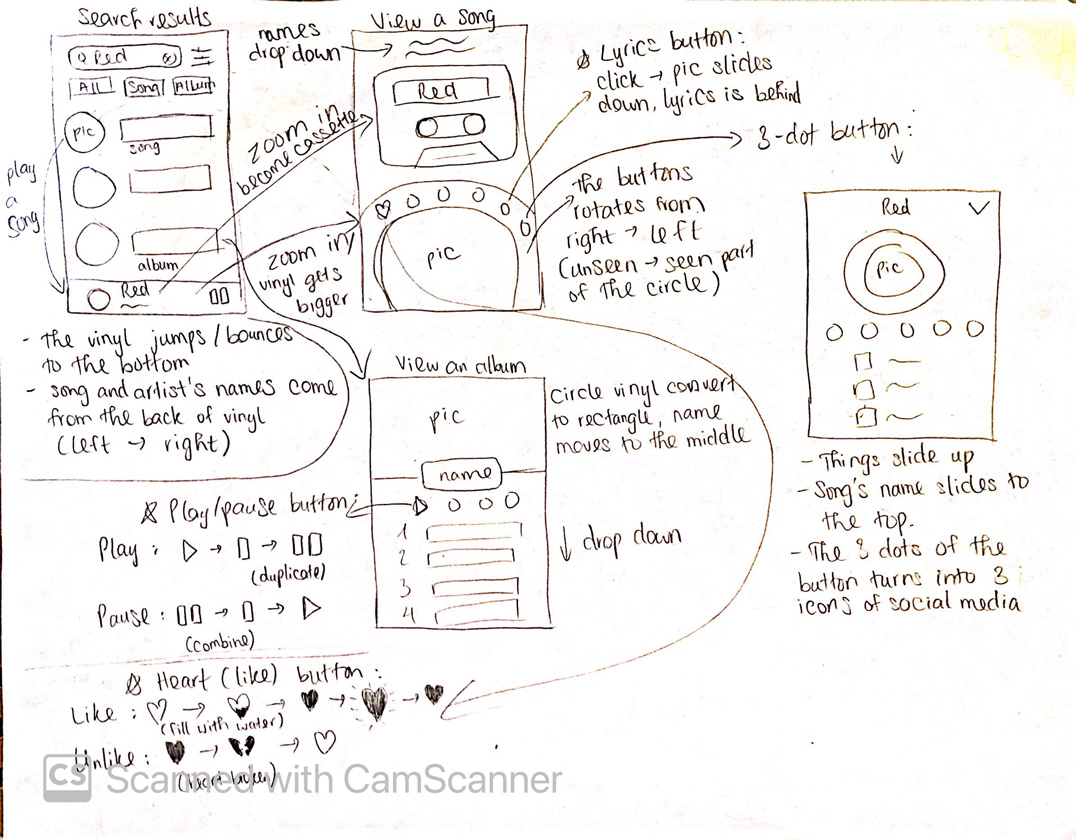 Search results
Red
All Song Album
pic
song
album
Red
play
a
song
zoom in
become cassette
zoom in
vinyl gets
bigger
- the vinyl jumps/bounces
to the bottom
- song and artist's names come
from the back of vinyl
(left → right)
View a song
names
drop down
Red
pic
Lyrics button:
click → pic slides
down, lyrics is behind
3-dot button:
the buttons
rotates from
right → left
(unseen → seen part
of the circle)
Red
pic
- Things slide up
- Song's name slides to
the top.
- The 3 dots of the
button turns into 3
icons of social media
View an album
pic
name
1
2
3
4
Circle vinyl convert
to rectangle, name
moves to the middle
drop down
Play/pause button:
Play: → →
(duplicate)
Pause: → →
(combine)
Heart (like) button:
Like: → → → →
(fill with water)
Unlike: → →
(heart broken)
CS Scanned with CamScanner